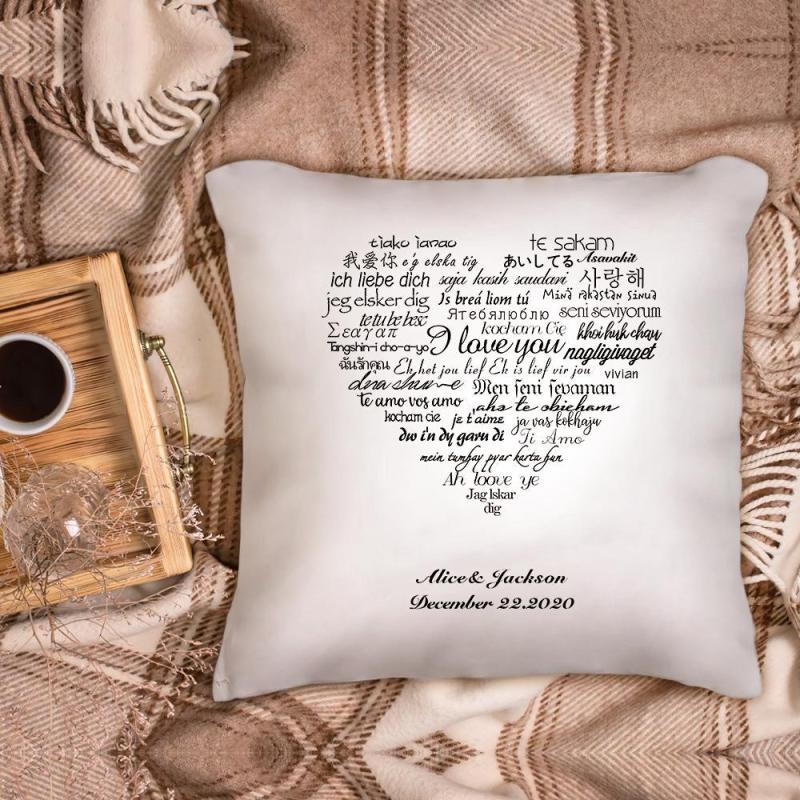 tiako ianao te sakam
我爱你 e'g elska tig あいしてる Asavakit
ich liebe dich saja kasih saudari 사랑해
jeg elsker dig Is breá liom tú Minä rakastan sinua
Ятебялюблю seni seviyorum
te tube besc kocham Cię
Σεαγαπ I love you khoi huk chau
Tangshin-i cho-a-yo nagligivaget
ฉันรักคุณ Ek het jou lief Ek is lief vir jou vivian
dna shum-e Men seni sevaman
te amo vos amo aho te obicham
kocham cie je t'aime ja vas kokhaju
dw i'n dy garu di Ti Amo
mein tumhay pyar karta hun
Ah loove ye
Jag lskar
dig
Alice & Jackson
December 22.2020